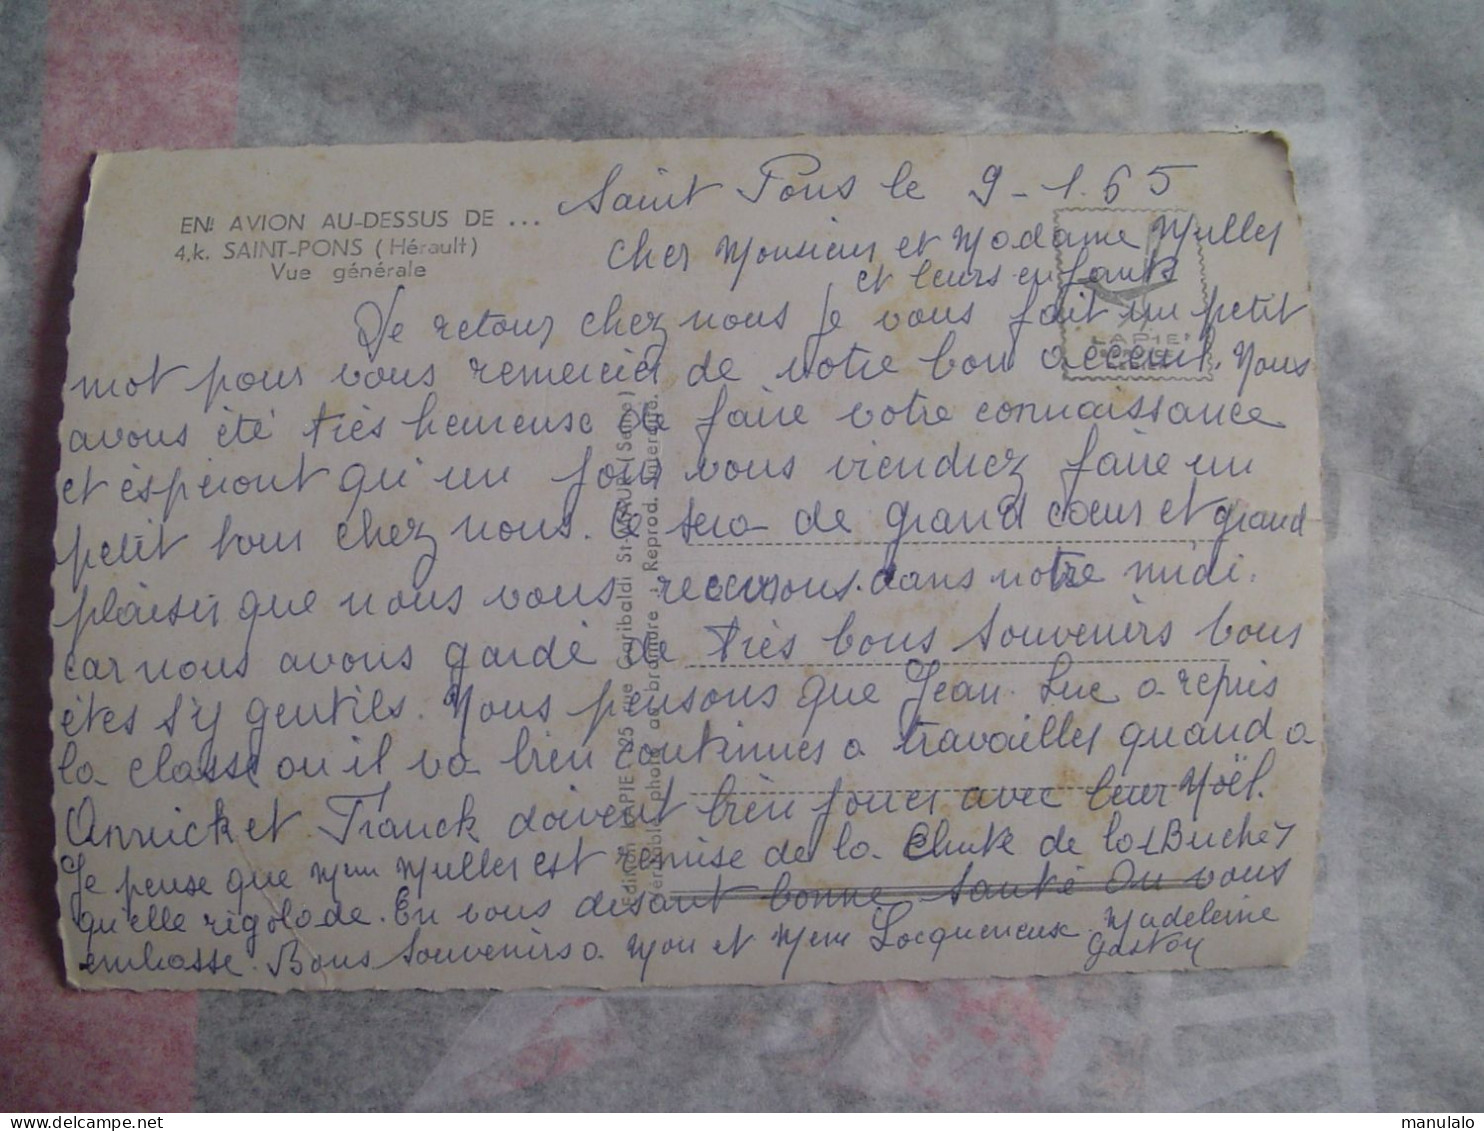 EN AVION AU-DESSUS DE ...
4.k. SAINT-PONS (Hérault)
Vue générale
Saint Pons le 9-1.65
Cher Monsieur et Madame Muller
et leurs enfants
De retour chez nous je vous fait un petit
mot pour vous remercier de votre bon acceuil. Nous
avous été très heureuse de faire votre connaissance
et éspéront qu'i un jour vous viendrez faire un
petit tour chez nous. Ce sera de grand cœur et grand
plaisir que nous vous recevrons. dans notre midi.
car nous avons gardé de très bons souvenirs vous
étes s'y gentils. Nous pensons que Jean. Luc a repris
la classe ou il va bien continuer a travailler quand a
Annick et Franck doivent bien jouer avec leur Noël.
Je pense que Mme Muller est remise de la Chute de la Buche
qu'elle rigolade. En vous disant bonne santé On vous
embasse. Bons souvenirs a Mon et Mme Locqueneuse. Madeleine
Gaston
Edition LAPIE 25 rue Garibaldi St-MAUR (Seine)
Véritable photo au bromure - Reprod. interdite.
LAPIE
manulalo